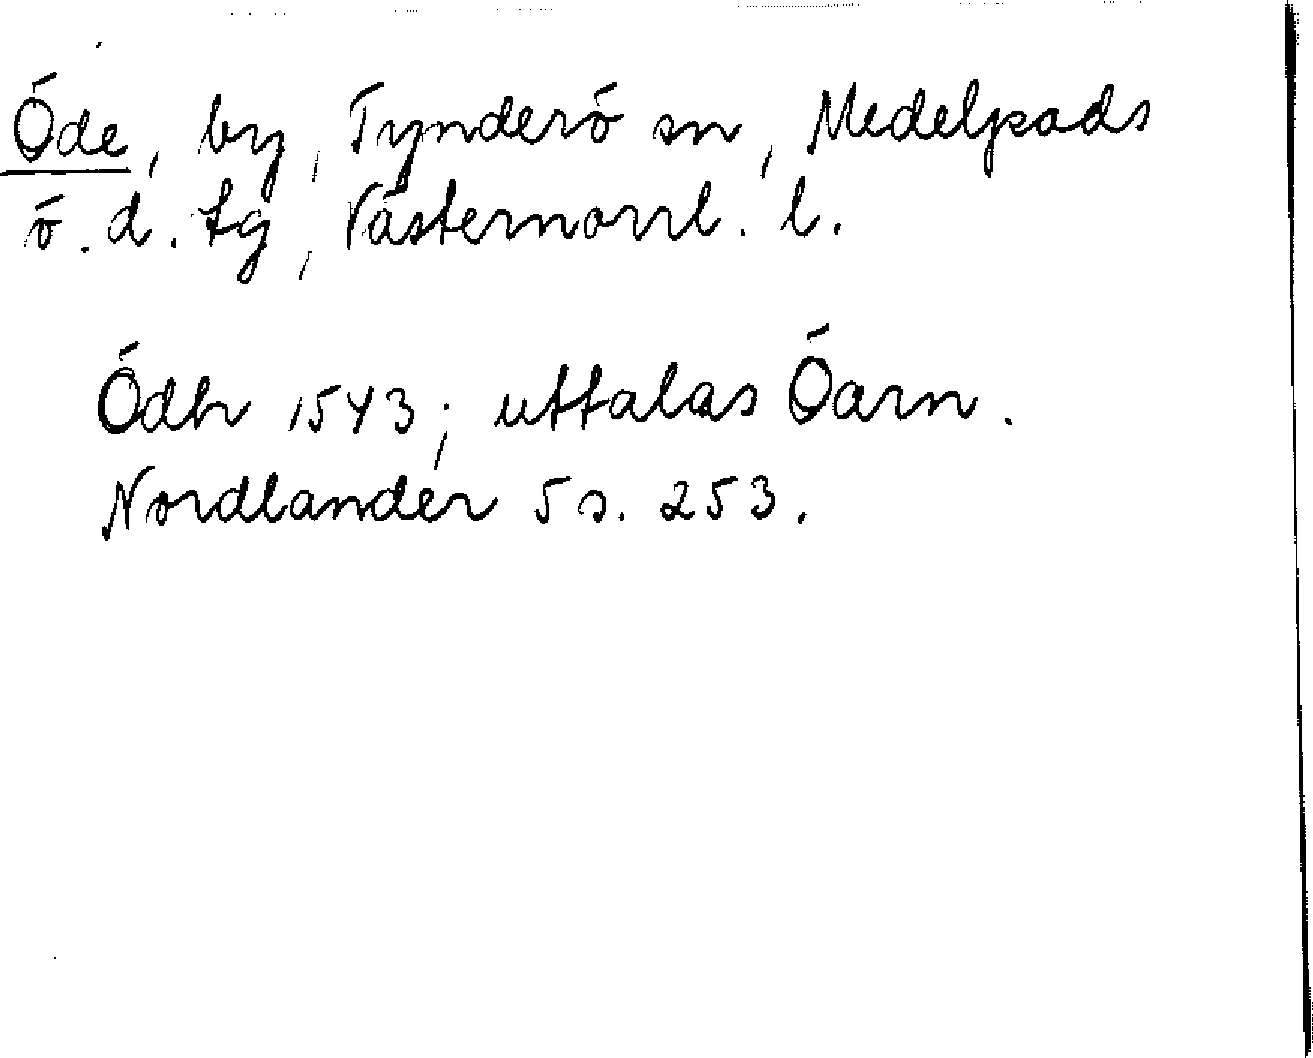 Öde, by, Tynderö sn, Medelpads
ö. d. tg, Västernorrl. l.
Ödhr 1543; uttalas Öarn.
Nordlander 5 s. 253.